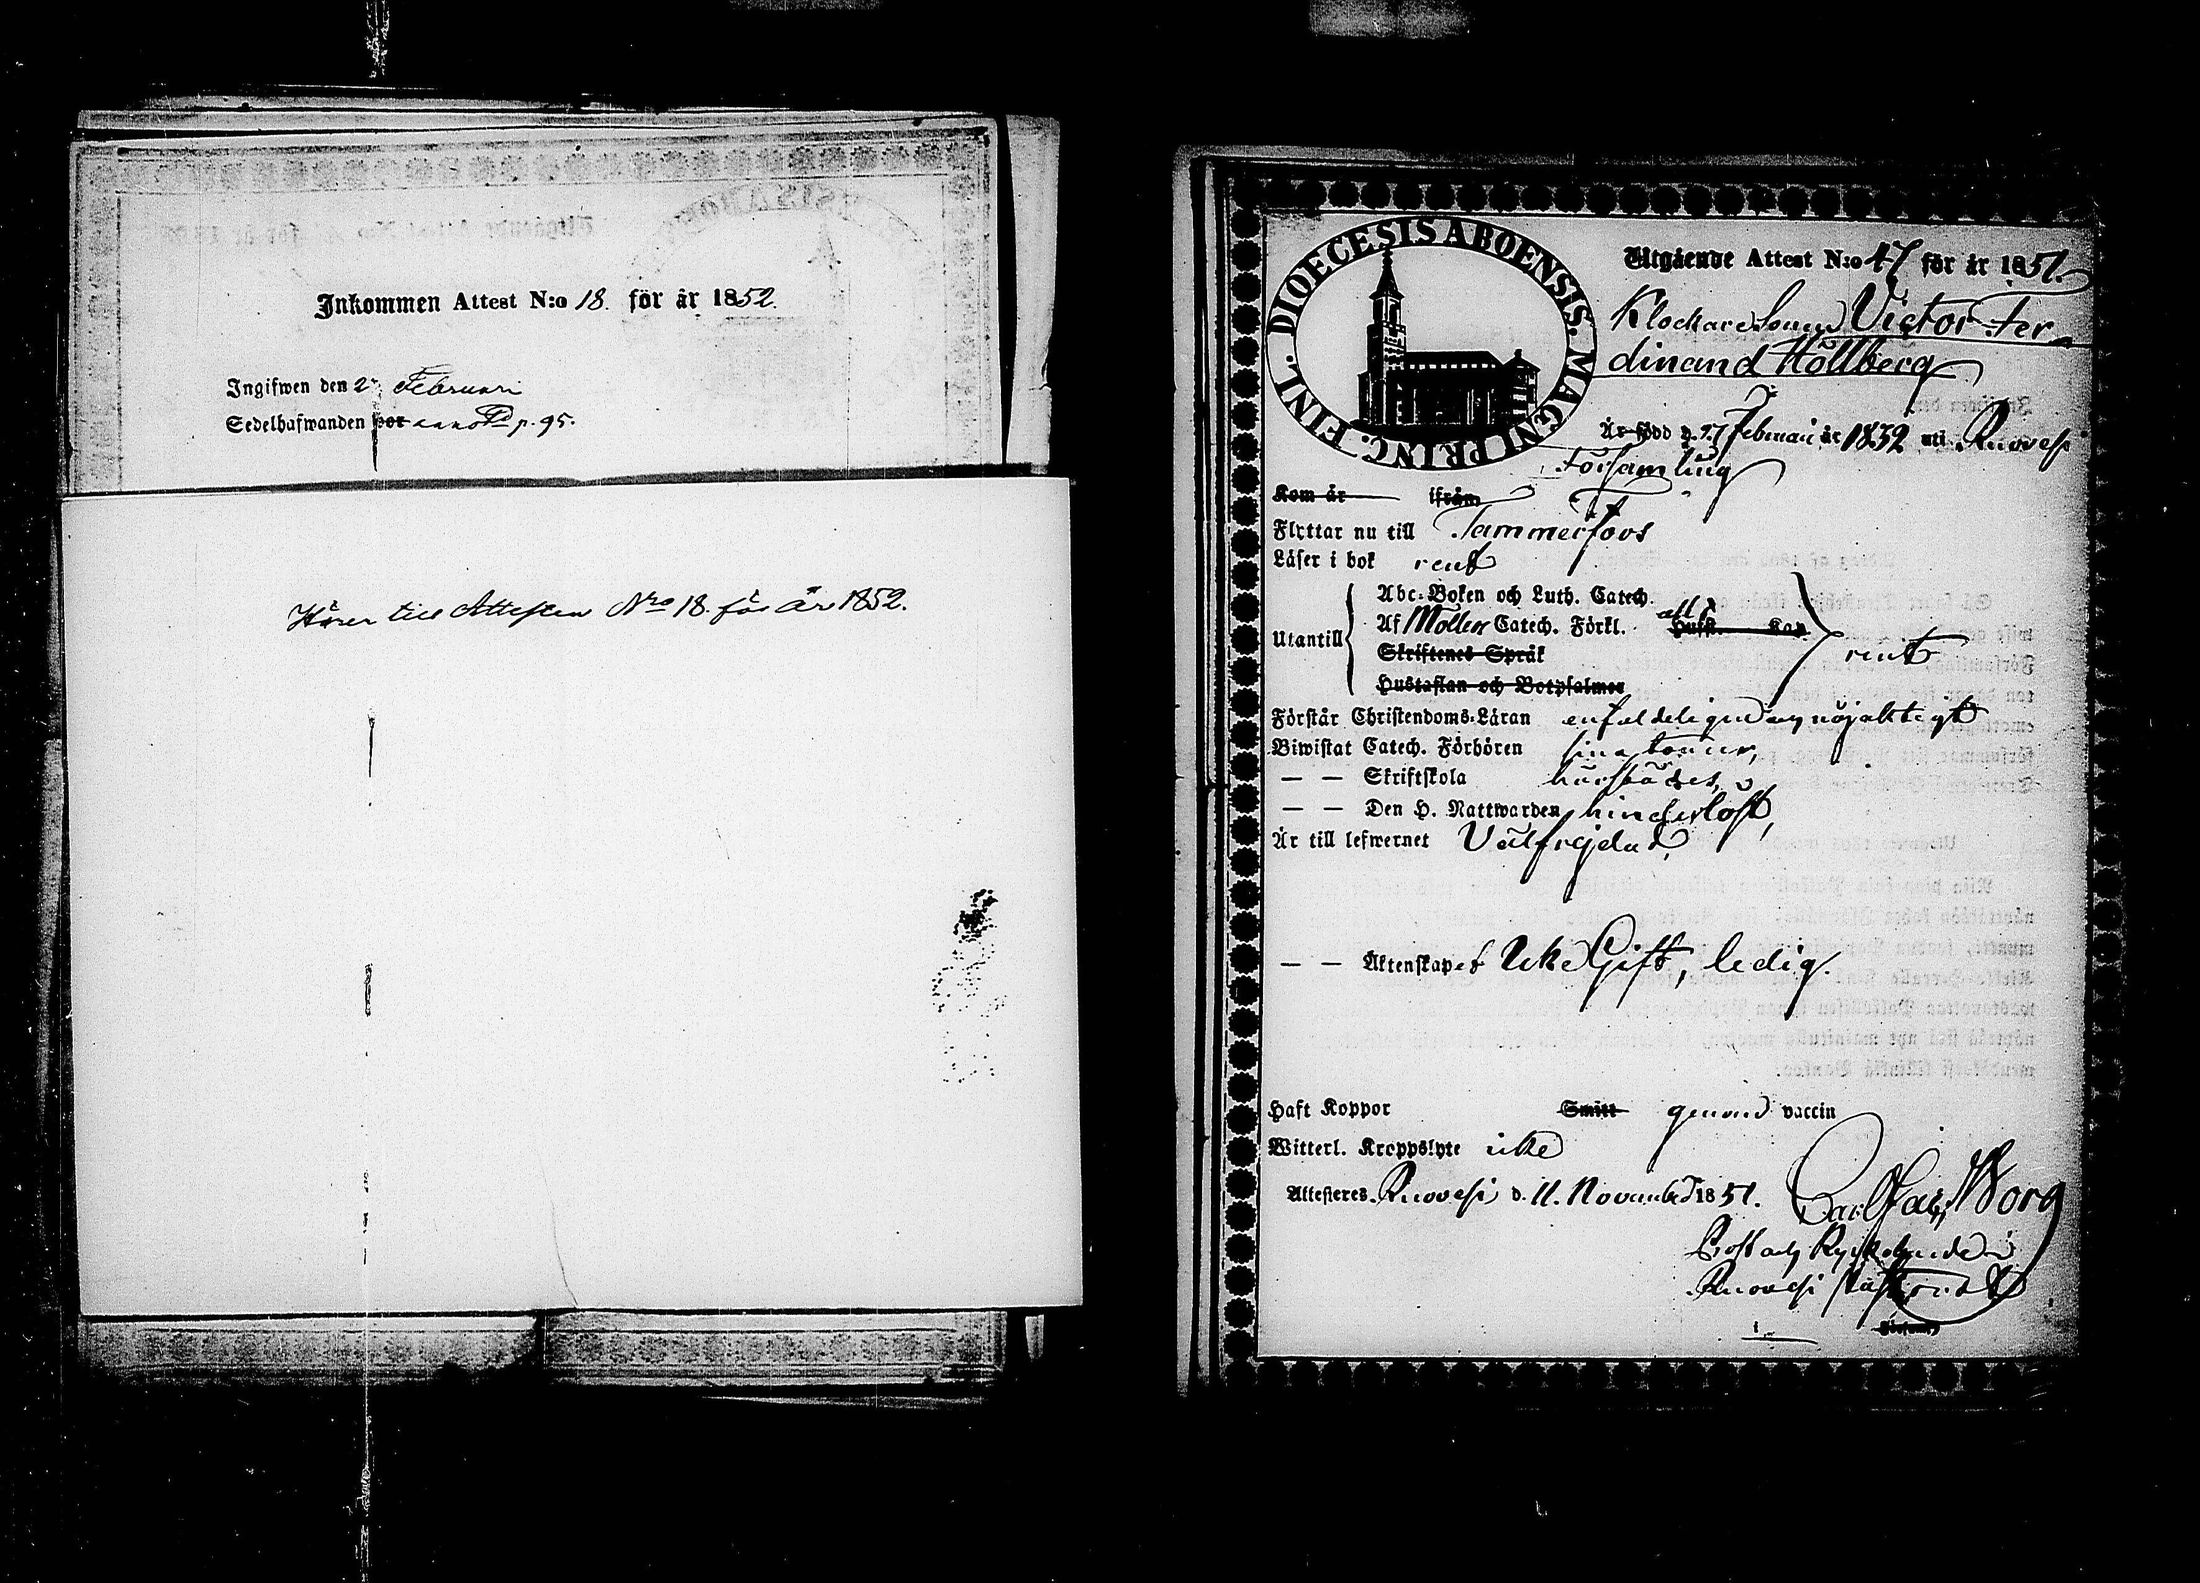 Inkommen Attest N:o 18. för år 1852.
Ingifwen den 2 Februari
Sedelhafwanden por anno p. 95.
Hörer till Attesten Nro 18. för år 1852.
DIOECESIS ABOENSIS. MAGNI PRINC. FINL.
Utgående Attest N:o 47 för år 1851.
Klockare Sonen Victor Fer
dinand Hollberg
Är född d. 17 Februari år 1832 uti Ruovesi
Församling
Kom år ifrån
Flyttar nu till Tammerfors
Läser i bok rent
Abc-Boken och Luth. Catech.
Utantill Af Möllers Catech. Förkl. allt Hufst. Kap. rent
Skriftenes Språk
Hustaflan och Botpsalmer
Förstår Christendoms-Läran enfaldeligen nöjaktigt
Biwistat Catech. Förhören sina
— — Skriftskola
— — Den H. Nattwarden hinderlöst,
Är till lefwernet Välfrejdad,
— — Äktenskapet Icke Gift, ledig.
Haft Koppor Smitt genom vaccin
Witterl. Kroppslyte icke
Attesteras. Ruovesi d. 11. November 1851.
Carl Borg
Prost och Kyrkoherde i
Ruovesi